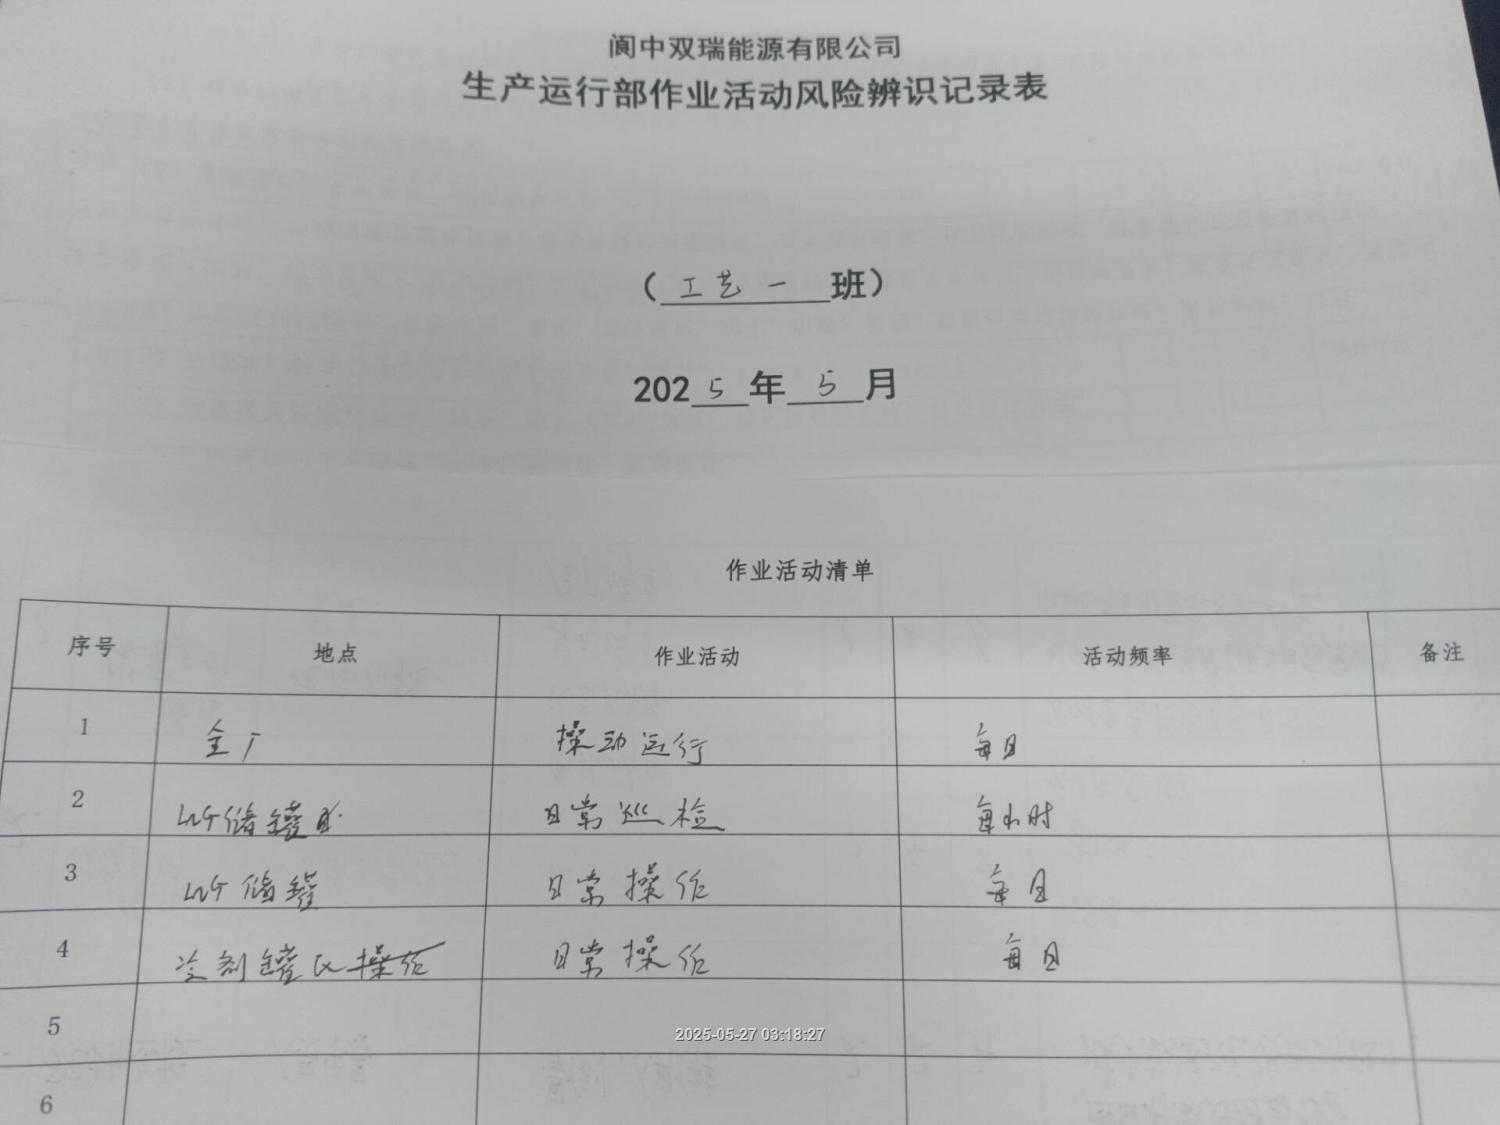 阆中双瑞能源有限公司
生产运行部作业活动风险辨识记录表
（工艺一班）
2025年5月
作业活动清单
序号 地点 作业活动 活动频率 备注
1 全厂 操动运行 每日
2 LNG储罐区 日常巡检 每小时
3 LNG储罐 日常操作 每日
4 冷剂罐区操作 日常操作 每日
5
6
2025-05-27 03:18:27